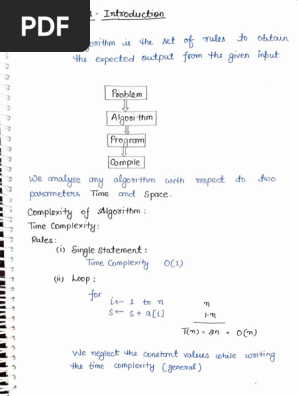 PDF
- Introduction
gorithm is the set of rules to obtain
the expected output from the given input
Problem
Algorithm
Program
Compile
We analyse any algorithm with respect to two
parameters Time and Space.
Complexity of Algorithm:
Time Complexity:
Rules:
(i) Single Statement:
Time Complexity O(1)
(ii) Loop:
for
i← 1 to n n
s← s + a[i] 1·n
T(n) = 2n = O(n)
We neglect the constant values while writing
the time complexity (general)